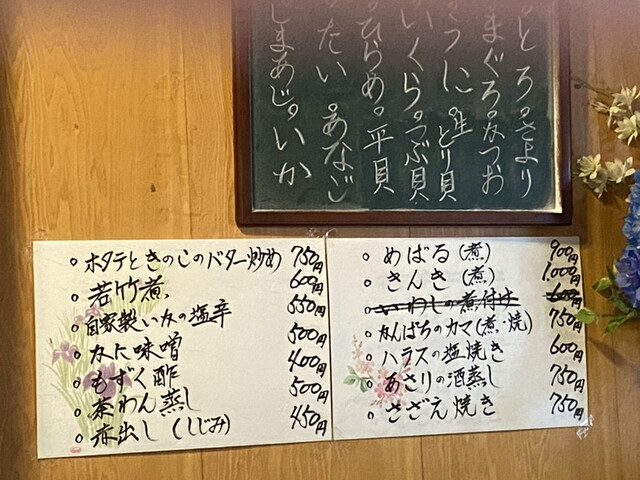 とろ。さより
まぐろ。かつお
うに。生とり貝
いくら。つぶ貝
ひらめ。平貝
たい。あなご
しまあじ。いか
○ホタテときのこのバター炒め 750円
○若竹煮 600円
○自家製いかの塩辛 550円
○かに味噌 500円
○もずく酢 400円
○茶わん蒸し 500円
○赤出し(しじみ) 450円
○めばる(煮) 900円
○きんき(煮) 1,000円
○いわしの煮付け 600円
○かんぱちのカマ(煮・焼) 750円
○ハラスの塩焼き 600円
○あさりの酒蒸し 750円
○さざえ焼き 750円